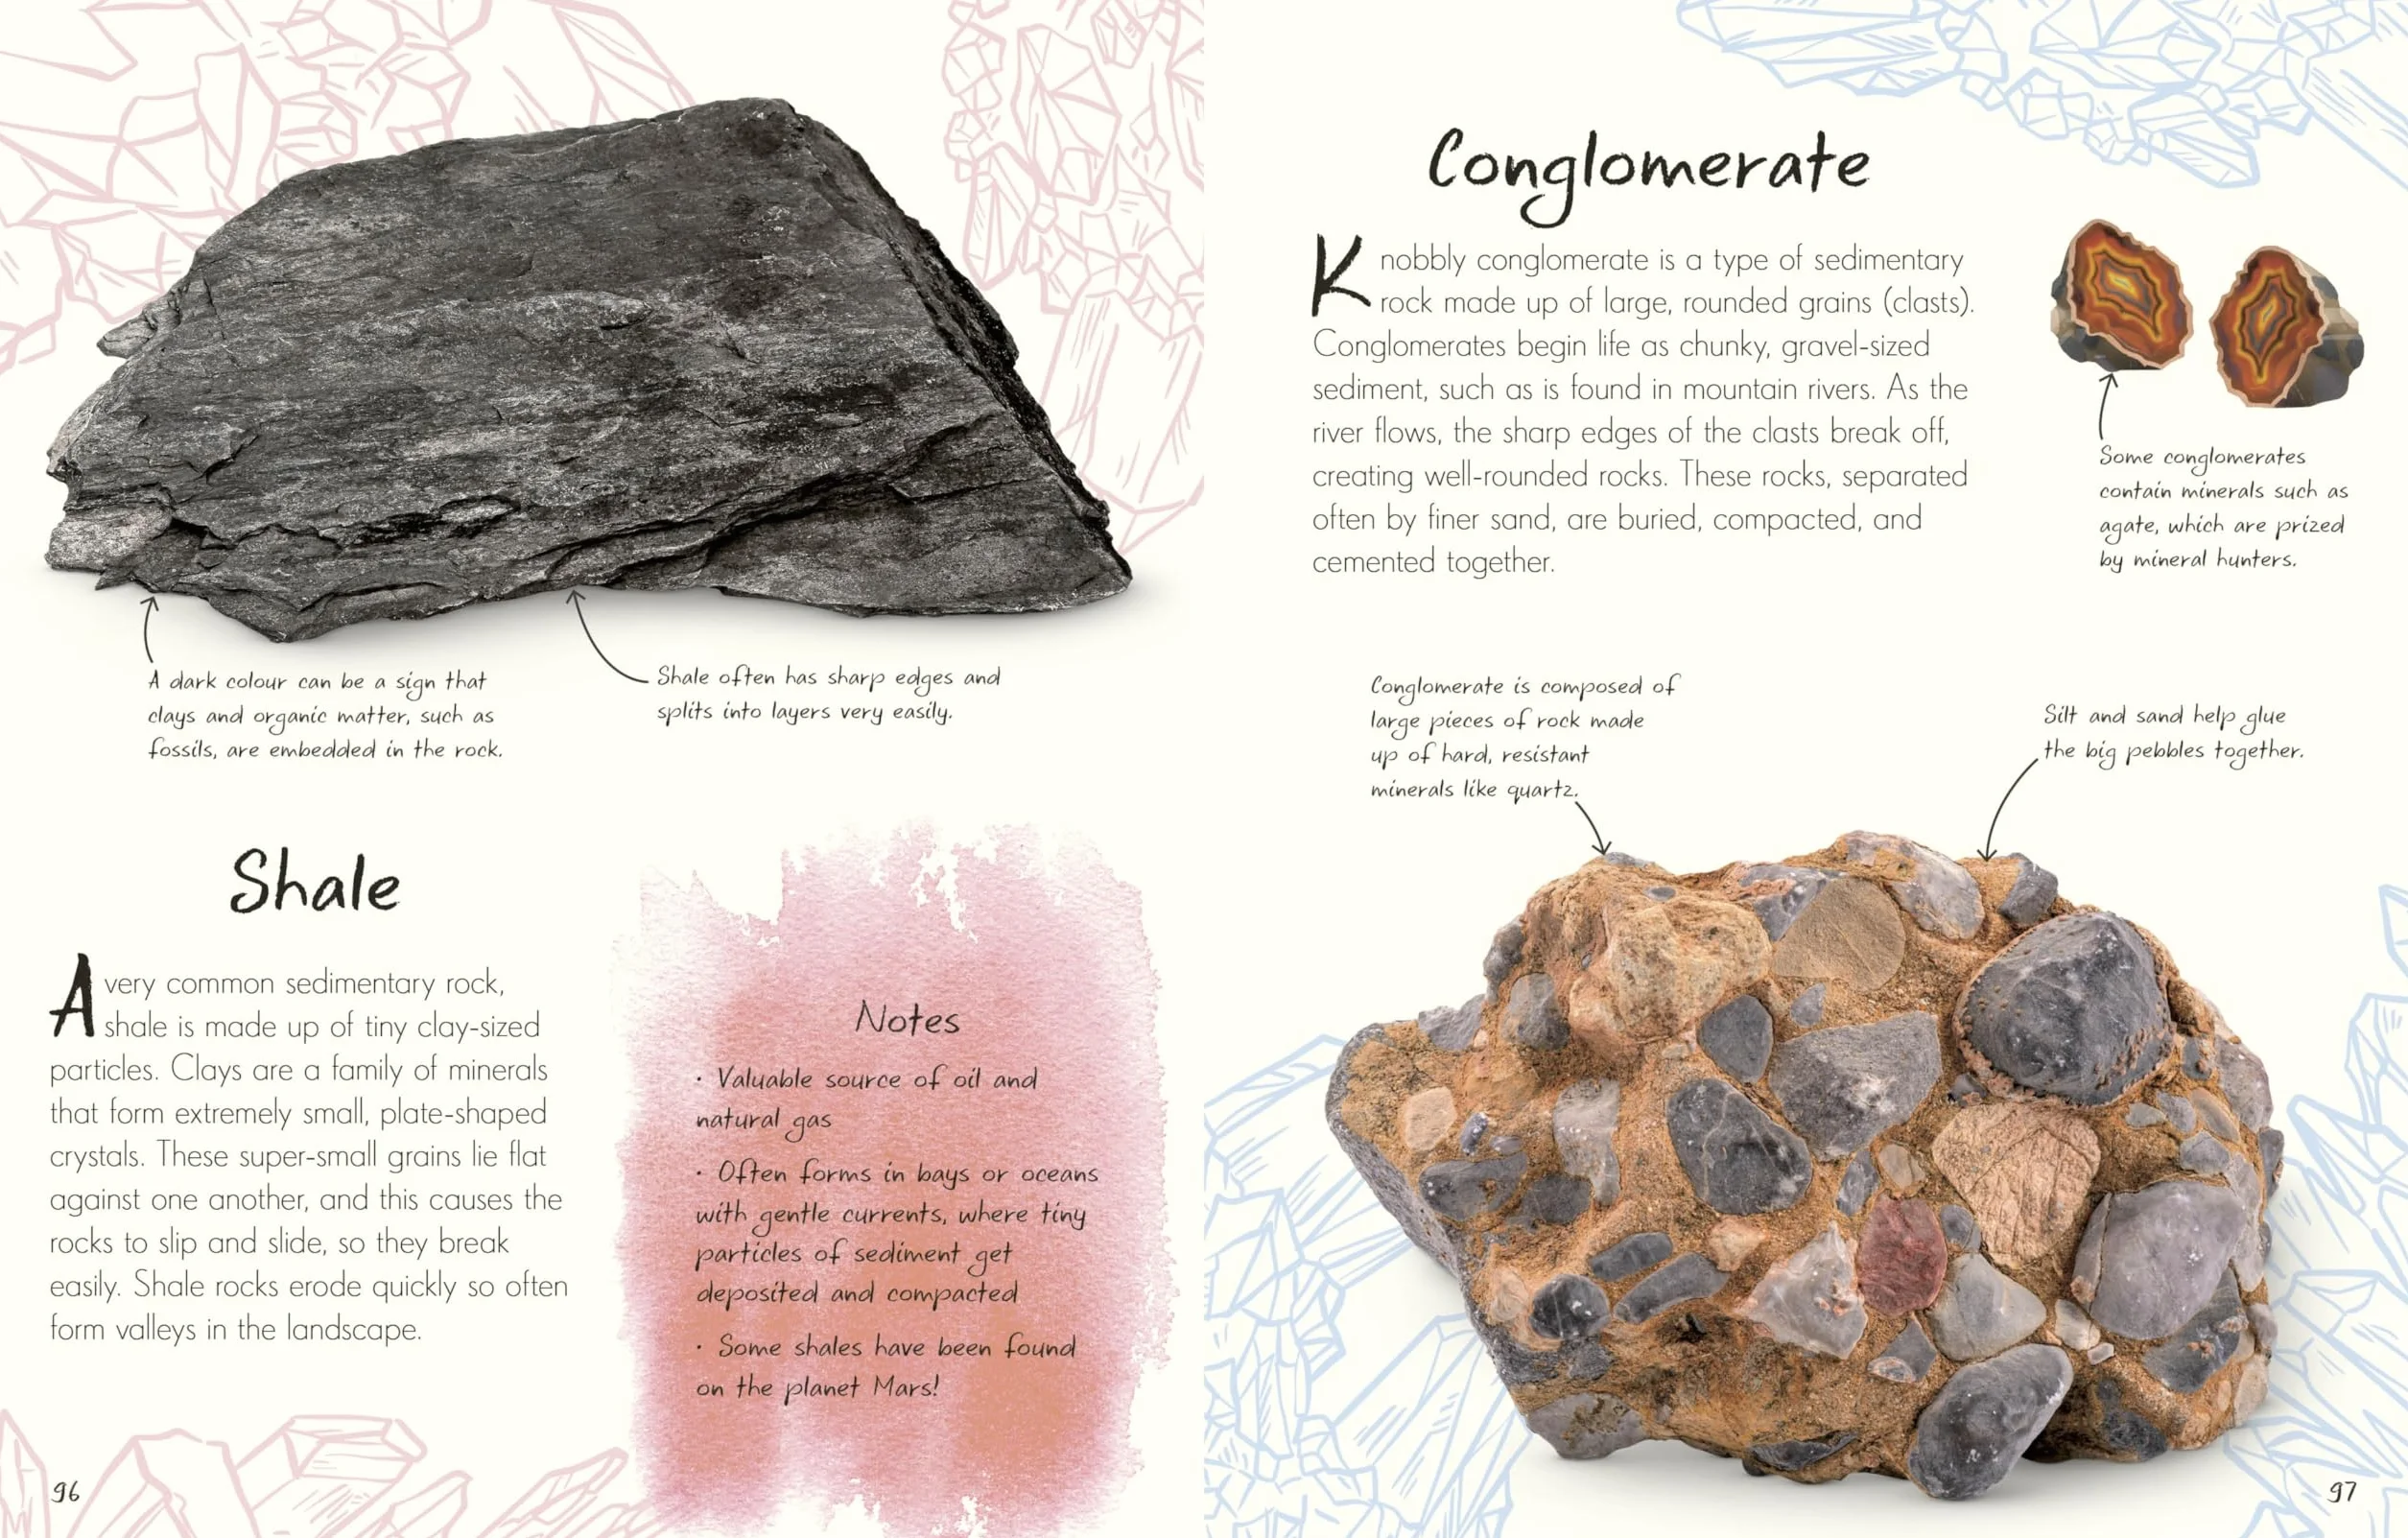 A dark colour can be a sign that
clays and organic matter, such as
fossils, are embedded in the rock.
Shale often has sharp edges and
splits into layers very easily.
Shale
A very common sedimentary rock,
shale is made up of tiny clay-sized
particles. Clays are a family of minerals
that form extremely small, plate-shaped
crystals. These super-small grains lie flat
against one another, and this causes the
rocks to slip and slide, so they break
easily. Shale rocks erode quickly so often
form valleys in the landscape.
Notes
· Valuable source of oil and
natural gas
· Often forms in bays or oceans
with gentle currents, where tiny
particles of sediment get
deposited and compacted
· Some shales have been found
on the planet Mars!
96
Conglomerate
Knobbly conglomerate is a type of sedimentary
rock made up of large, rounded grains (clasts).
Conglomerates begin life as chunky, gravel-sized
sediment, such as is found in mountain rivers. As the
river flows, the sharp edges of the clasts break off,
creating well-rounded rocks. These rocks, separated
often by finer sand, are buried, compacted, and
cemented together.
Some conglomerates
contain minerals such as
agate, which are prized
by mineral hunters.
Conglomerate is composed of
large pieces of rock made
up of hard, resistant
minerals like quartz.
Silt and sand help glue
the big pebbles together.
97